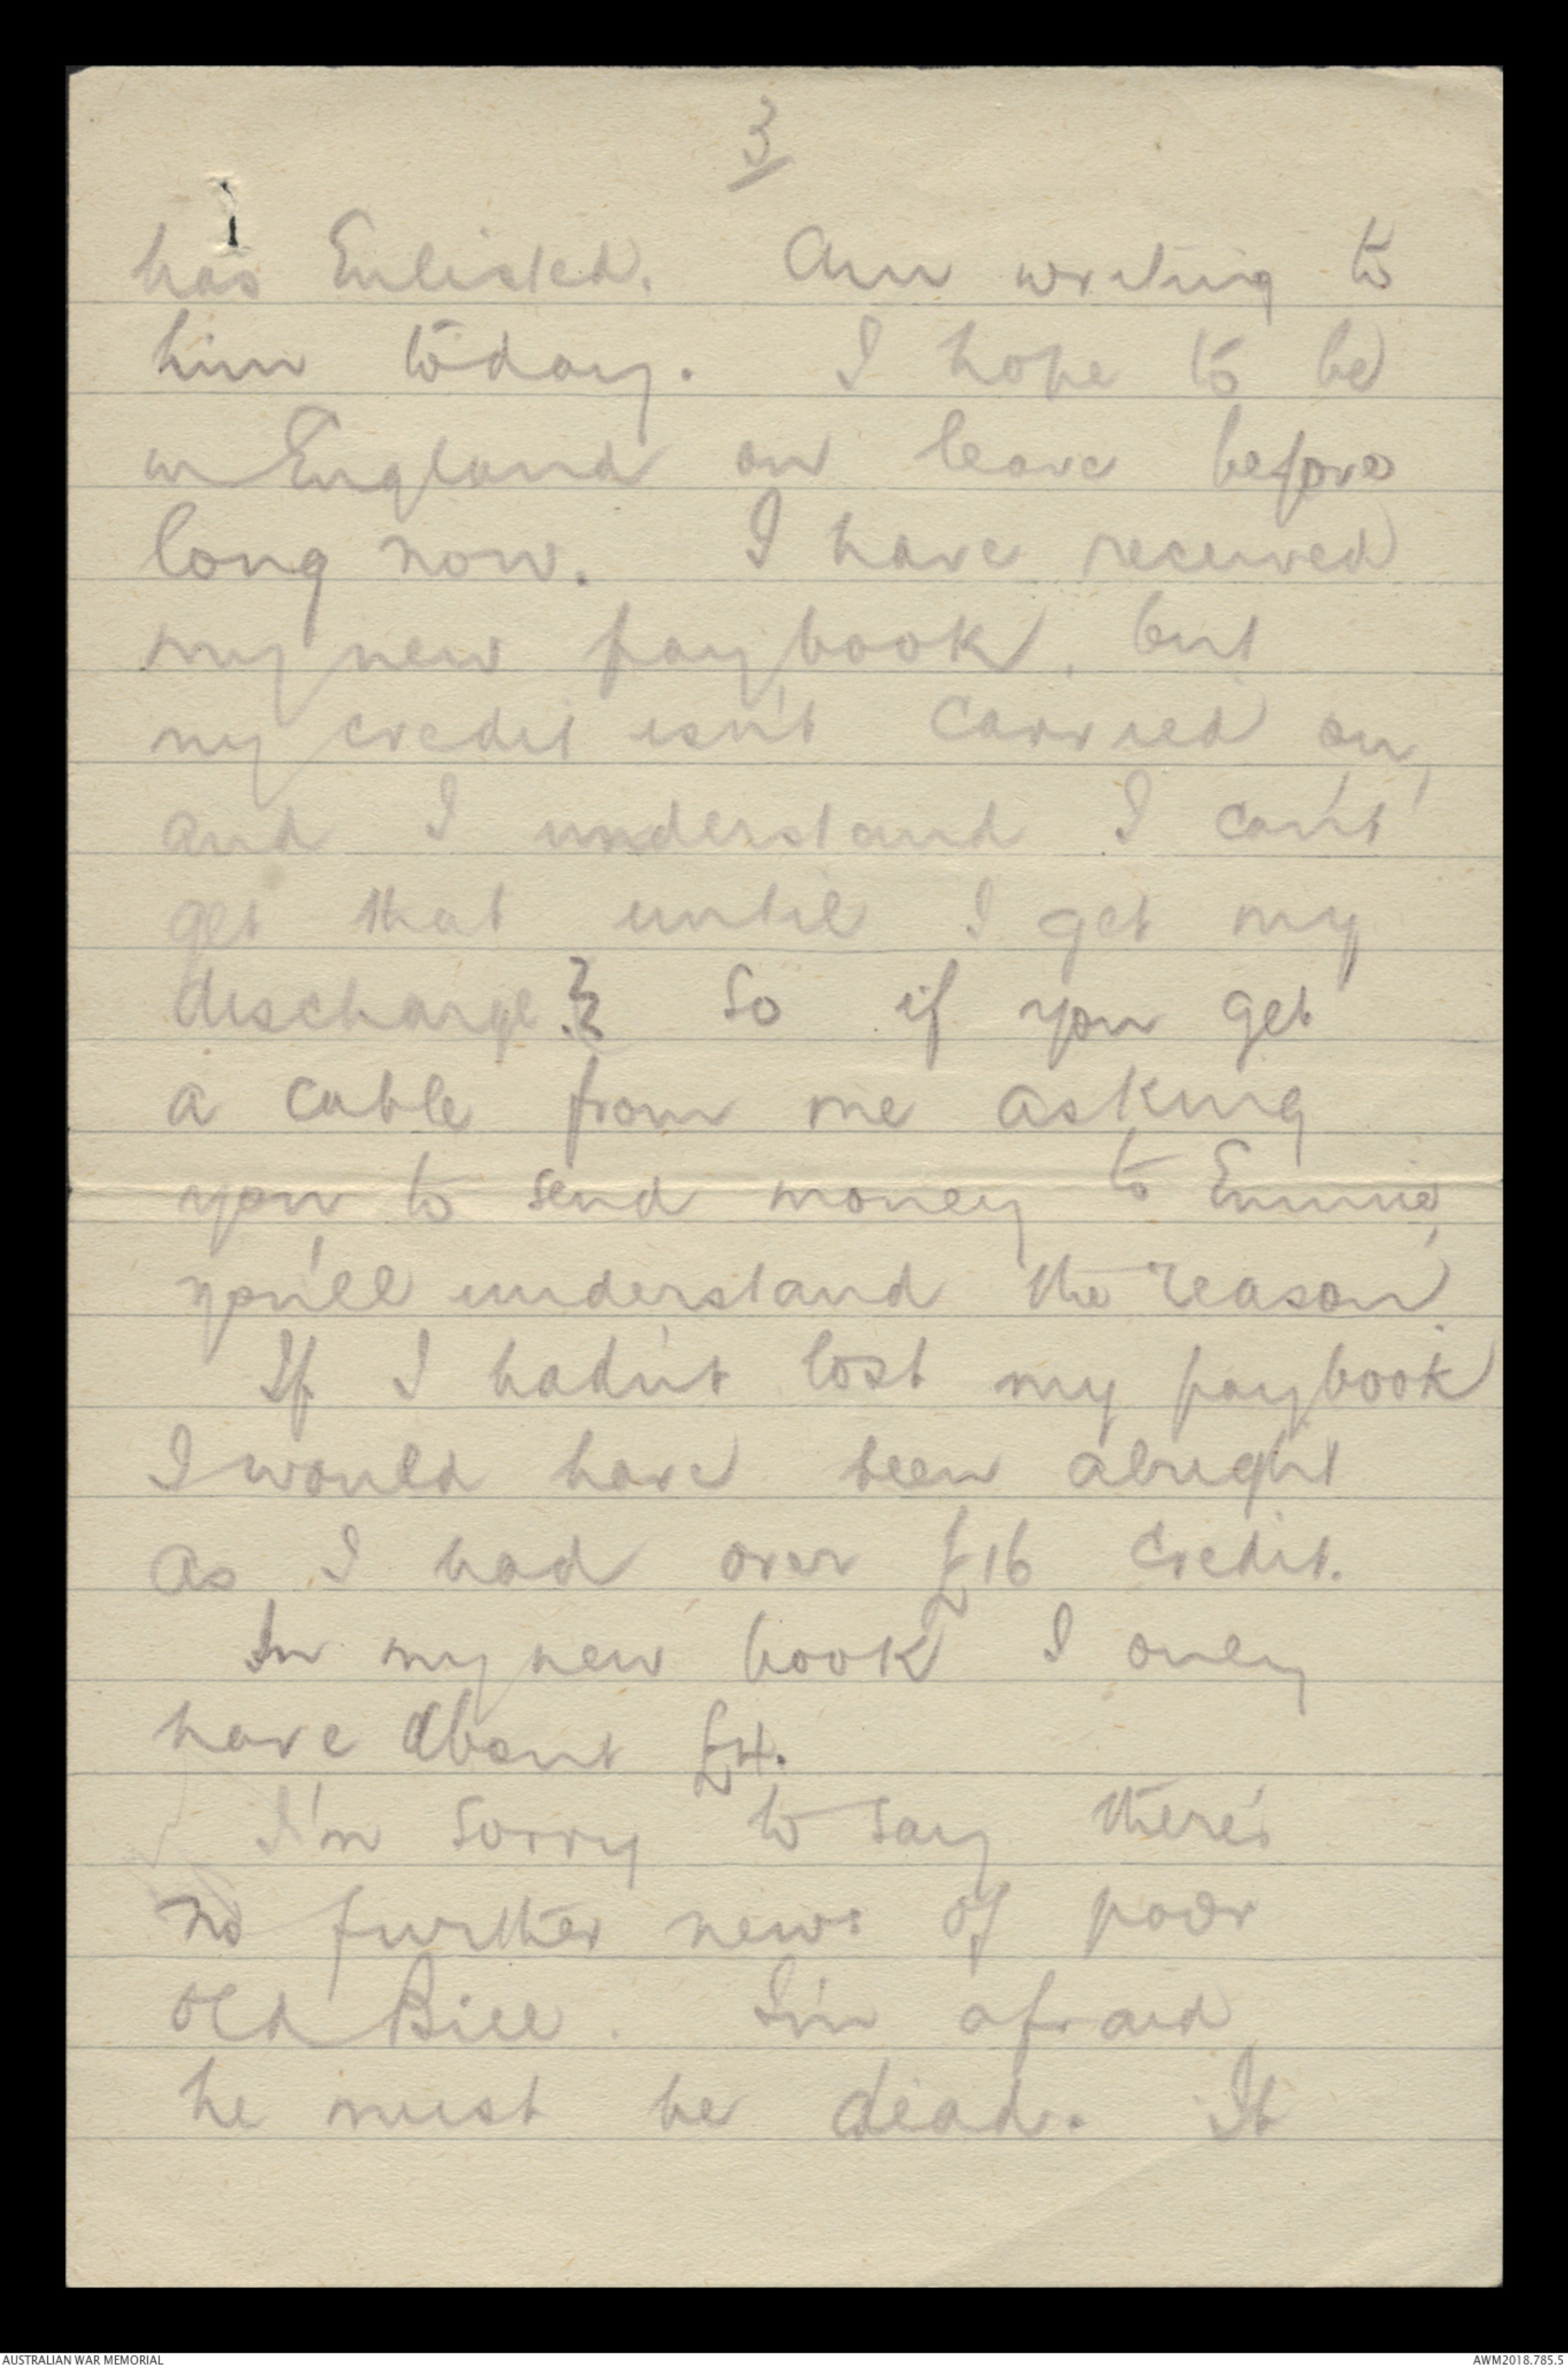 3
has Enlisted. Am writing to
him today. I hope to be
in England on leave before
long now. I have received
my new pay book, but
my credit isn't carried on,
and I understand I can't
get that until I get my
discharge. So if you get
a cable from me asking
you to send money to Emmie,
you'll understand the reason.
If I hadn't lost my paybook
I would have been alright
as I had over £16 credit.
In my new book I only
have about £4.
I'm sorry to say there's
no further news of poor
old Bill. I'm afraid
he must be dead. It
AUSTRALIAN WAR MEMORIAL
AWM2018.785.5